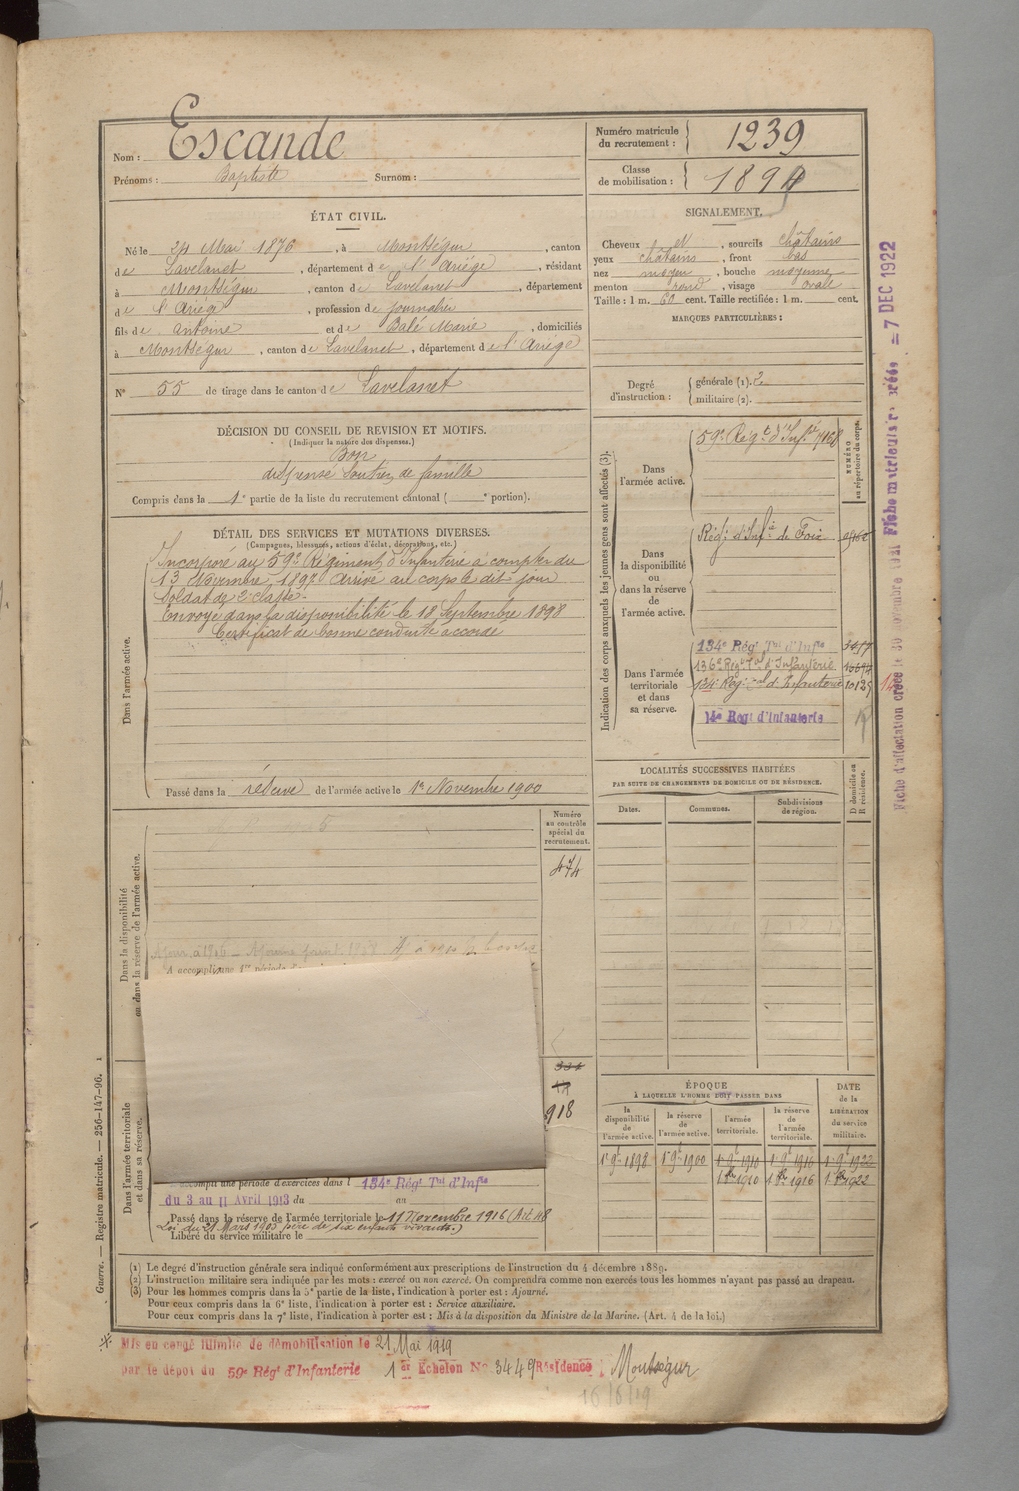 Nom : Escande
Prénoms : Baptiste Surnom :
Numéro matricule du recrutement : 1239
Classe de mobilisation :
ÉTAT CIVIL.
Né le 24 Mai 1876, à Montségur, canton
de Lavelanet, département de l'Ariège, résidant
à Montségur, canton de Lavelanet, département
de l'Ariège, profession de journalier
fils de Antoine et de Balé Marie, domiciliés
à Montségur, canton de Lavelanet, département de l'Ariège
N° 55 de tirage dans le canton de Lavelanet
SIGNALEMENT.
Cheveux et, sourcils châtains
yeux châtains, front bas
nez moyen, bouche moyenne
menton rond, visage ovale
Taille : 1 m. 60 cent. Taille rectifiée : 1 m. cent.
MARQUES PARTICULIÈRES :
Degré d'instruction : générale (1). 2
militaire (2).
DÉCISION DU CONSEIL DE REVISION ET MOTIFS.
(Indiquer la nature des dispenses.)
Bon
dispensé Soutien de famille
Compris dans la 1e partie de la liste du recrutement cantonal ( e portion).
DÉTAIL DES SERVICES ET MUTATIONS DIVERSES.
(Campagnes, blessures, actions d'éclat, décorations, etc.)
Dans l'armée active.
Incorporé au 59e Régiment d'Infanterie à compter du
13 Novembre 1897 Arrivé au corps le dit jour
Soldat de 2e classe.
Envoyé dans la disponibilité le 18 Septembre 1898
Certificat de bonne conduite accordé
Passé dans la réserve de l'armée active le 1er Novembre 1900
Indication des corps auxquels les jeunes gens sont affectés (3).
NUMÉRO au répertoire du corps.
Dans l'armée active.
59e Régt d'Infie 7168
Dans la disponibilité ou dans la réserve de l'armée active.
Régt d'Infie de Foix
Dans l'armée territoriale et dans sa réserve.
134e Régt Tal d'Infie
136e Régt Tal d'Infanterie
134e Régt Tal d'Infanterie 10135
14e Régt d'Infanterie
LOCALITÉS SUCCESSIVES HABITÉES
PAR SUITE DE CHANGEMENTS DE DOMICILE OU DE RÉSIDENCE.
Dates. Communes. Subdivisions de région. D domicile ou R résidence.
Dans la disponibilité ou dans la réserve de l'armée active.
Numéro au contrôle spécial du recrutement.
474
A accompli une 1re période
Dans l'armée territoriale et dans sa réserve.
918
accompli une période d'exercices dans l 134e Régt Tal d'Infie
du 3 au 11 Avril 1913 du au
Passé dans la réserve de l'armée territoriale le 11 Novembre 1916 (Art 48
Loi du 21 Mars 1905 père de six enfants vivants)
Libéré du service militaire le
ÉPOQUE
À LAQUELLE L'HOMME DOIT PASSER DANS
la disponibilité de l'armée active.
la réserve de l'armée active.
l'armée territoriale.
la réserve de l'armée territoriale.
DATE de la LIBÉRATION du service militaire.
1er 9bre 1898 1er 9bre 1900 1er 9bre 1910 1er 9bre 1916 1er 9bre 1922
Guerre. — Registre matricule. — 256-147-96. 1
(1) Le degré d'instruction générale sera indiqué conformément aux prescriptions de l'instruction du 4 décembre 1889.
(2) L'instruction militaire sera indiquée par les mots : exercé ou non exercé. On comprendra comme non exercés tous les hommes n'ayant pas passé au drapeau.
(3) Pour les hommes compris dans la 5e partie de la liste, l'indication à porter est : Ajourné.
Pour ceux compris dans la 6e liste, l'indication à porter est : Service auxiliaire.
Pour ceux compris dans la 7e liste, l'indication à porter est : Mis à la disposition du Ministre de la Marine. (Art. 4 de la loi.)
Mis en congé illimité de démobilisation le 21 Mai 1919
par le dépôt du 59e Régt d'Infanterie 1er Echelon No 3449 Résidence, Montségur
16/6/19
Fiche matricule créée = 7 DEC 1922
Fiche d'affectation créée le 30 novembre